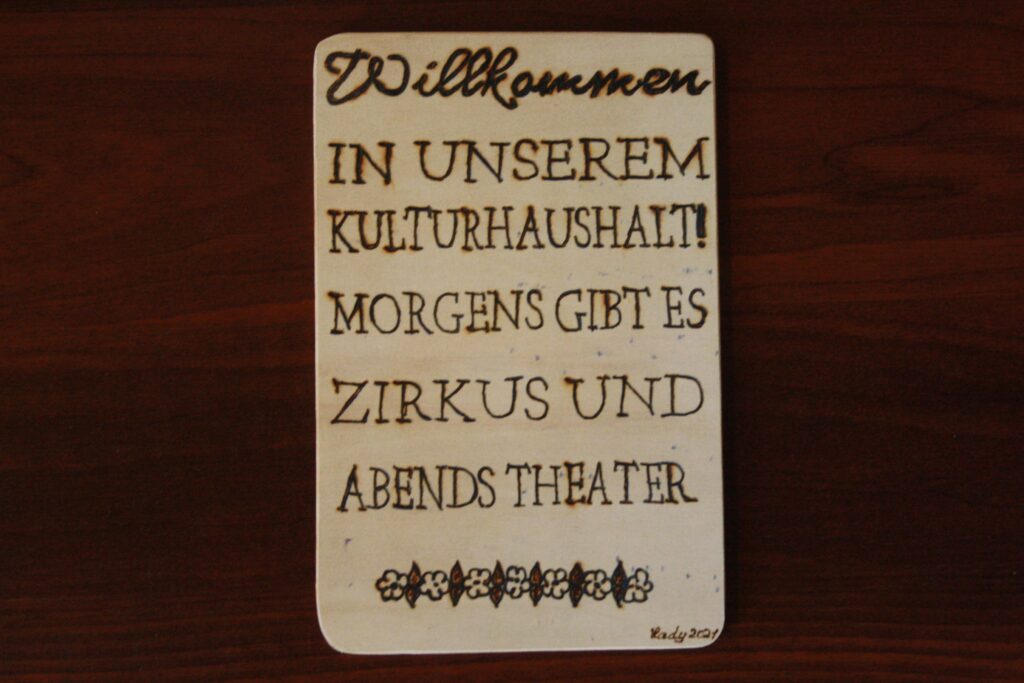 Willkommen
IN UNSEREM
KULTURHAUSHALT!
MORGENS GIBT ES
ZIRKUS UND
ABENDS THEATER
Kady 2021